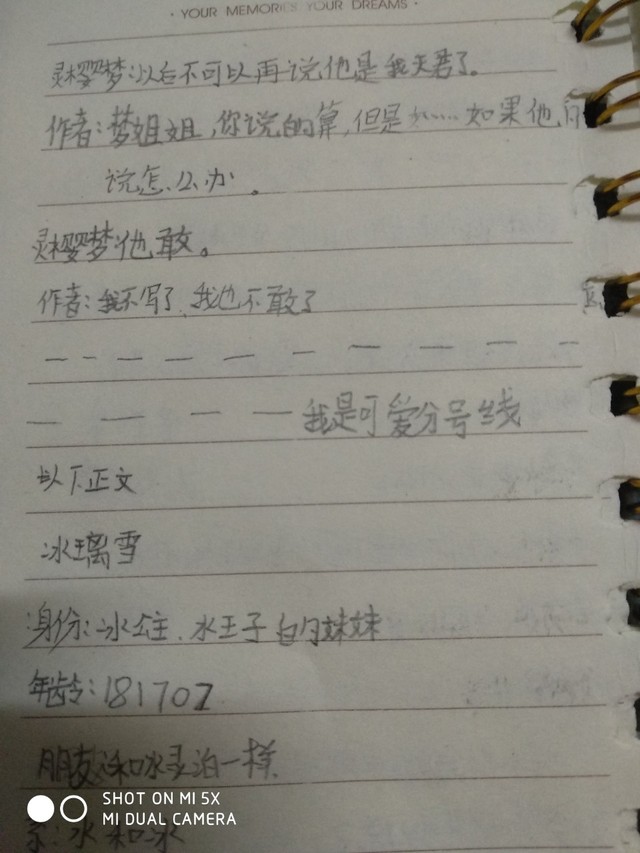 · YOUR MEMORIES YOUR DREAMS ·
灵樱梦:以后不可以再说他是我夫君了。
作者:梦姐姐,你说的算,但是如……如果他
说怎么办。
灵樱梦:他敢。
作者:我不写了,我也不敢了
— — — — — — — — —
— — — — 我是可爱分号线
以下正文
冰璃雪
身份:冰公主、水王子的妹妹
年龄:181702
朋友:和冰灵泊一样
系:水和冰
SHOT ON MI 5X
MI DUAL CAMERA